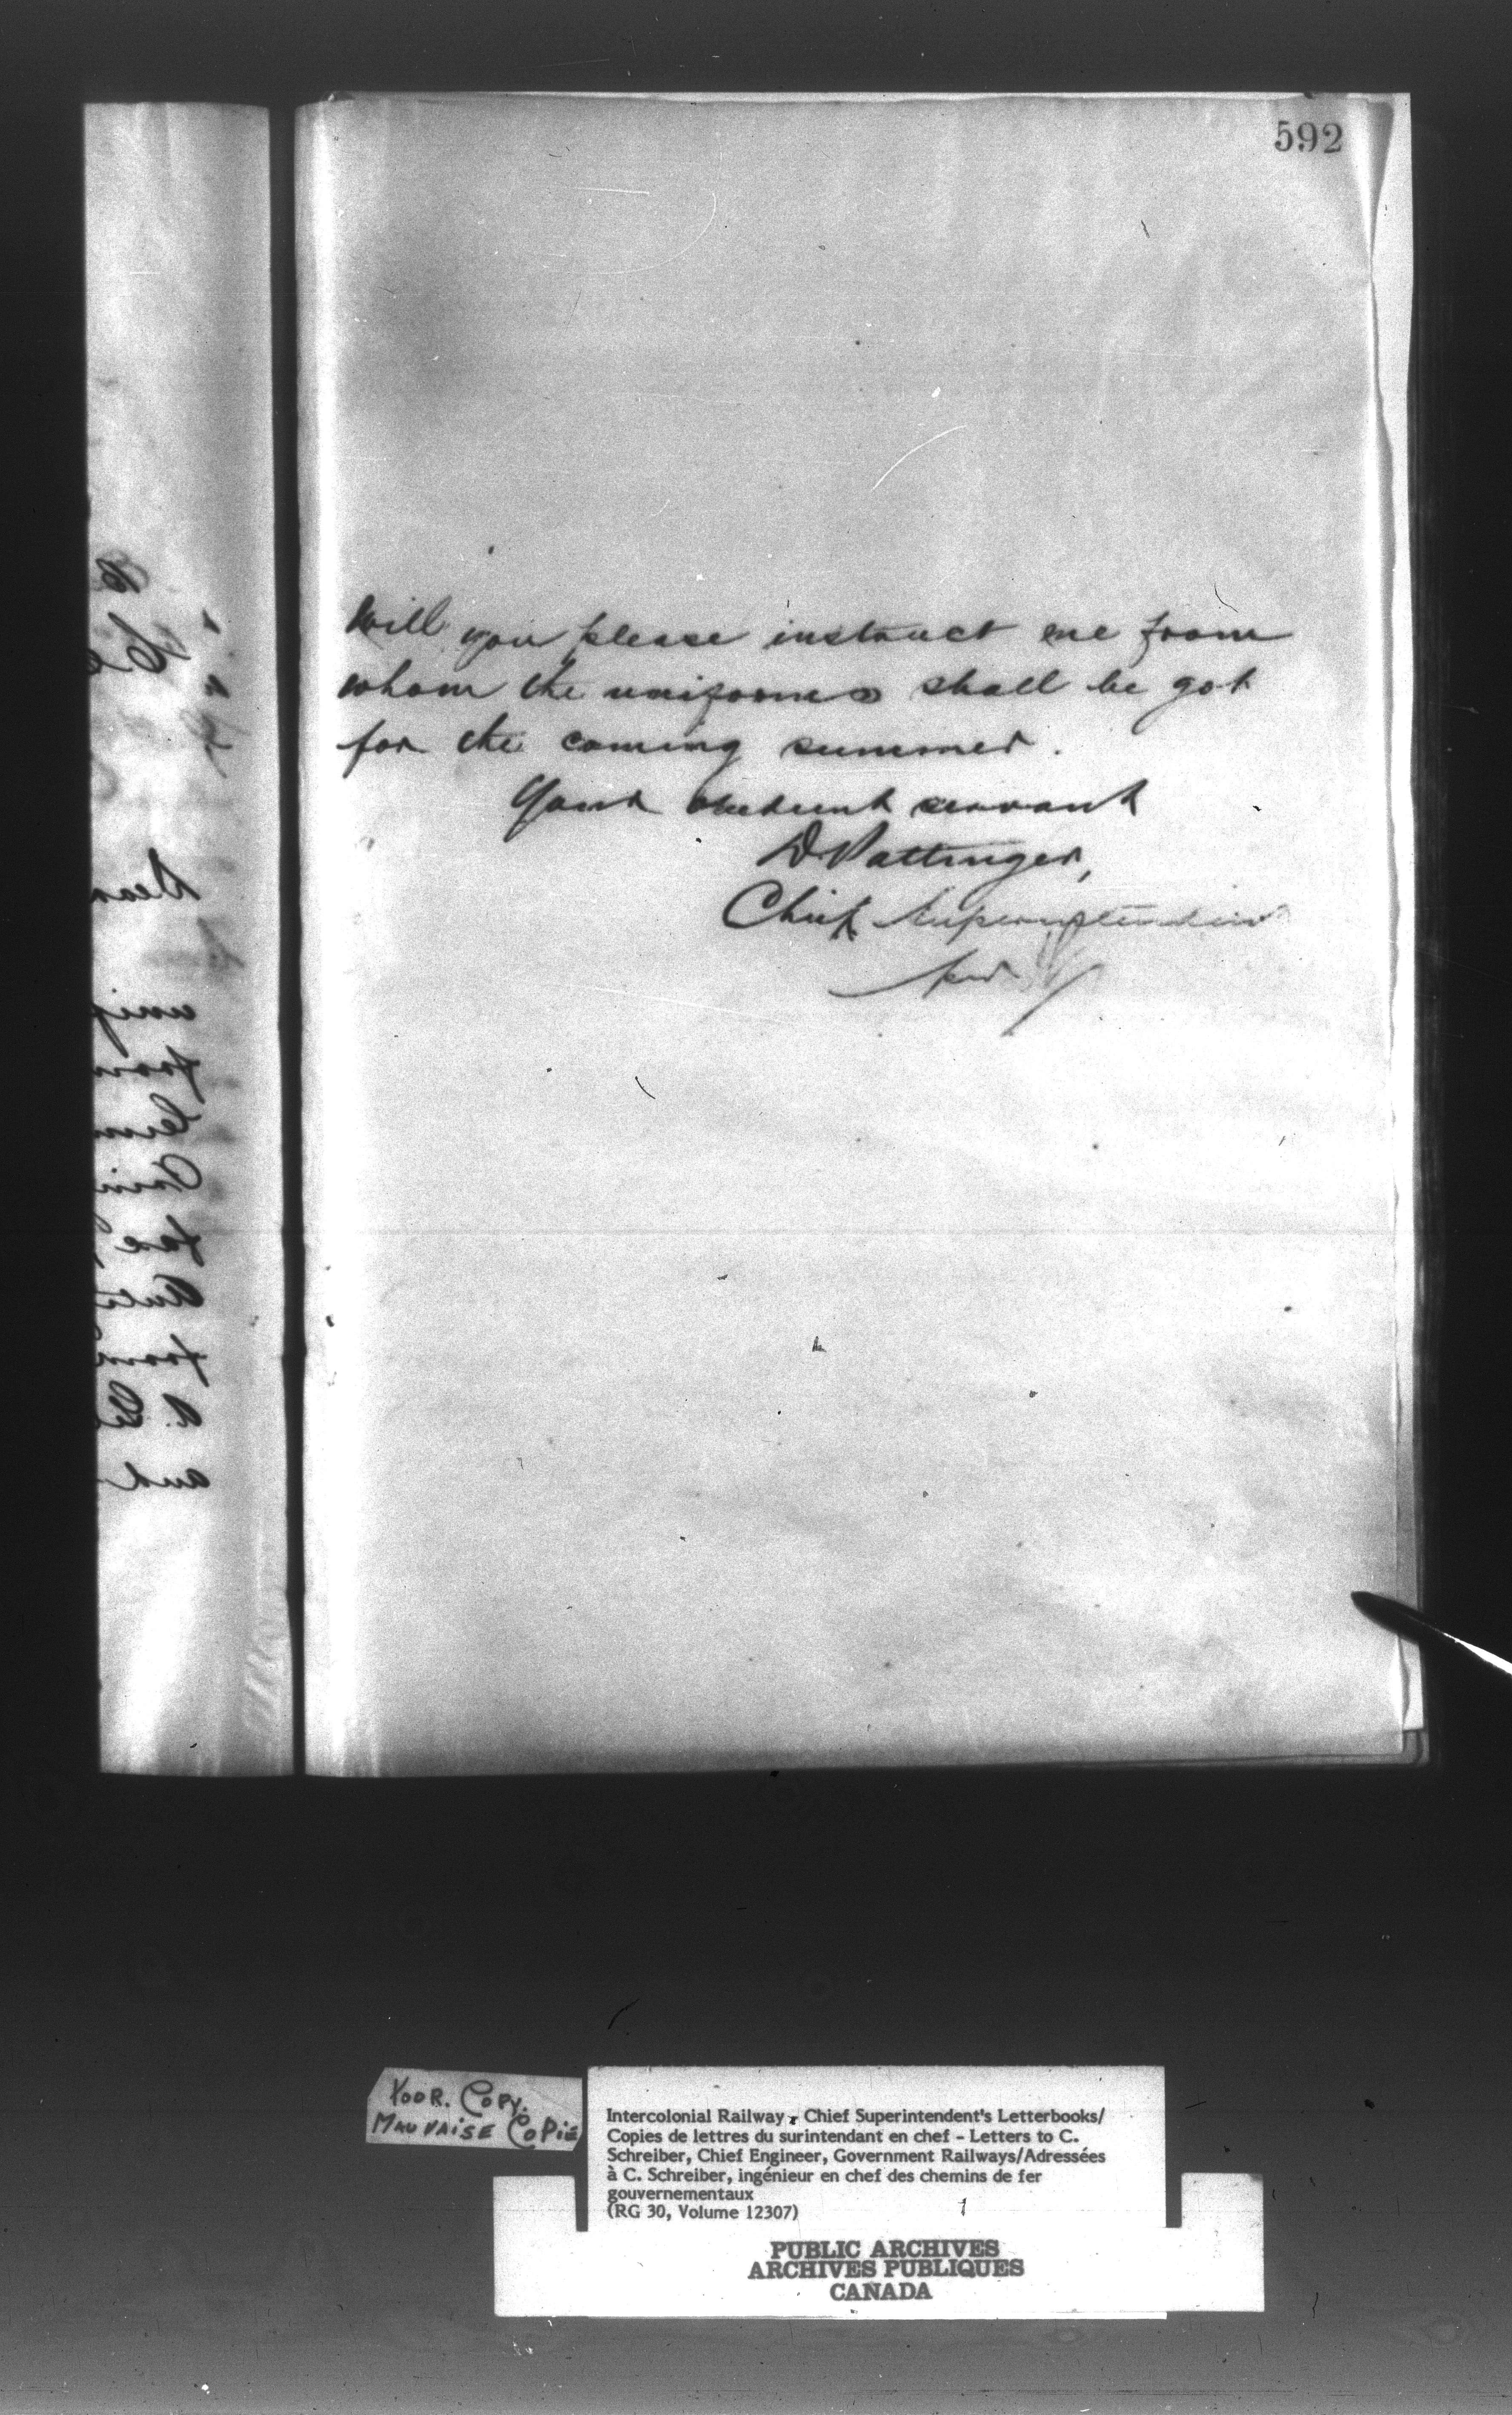 592
Will you please instruct me from
whom the uniforms shall be got
for the coming summer.
Your obedient servant
D. Pottinger,
Chief Superintendent
Dear
unif
from
a.
and
POOR. COPY.
MAUVAISE COPIE
Intercolonial Railway, Chief Superintendent's Letterbooks/
Copies de lettres du surintendant en chef - Letters to C.
Schreiber, Chief Engineer, Government Railways/Adressées
à C. Schreiber, ingénieur en chef des chemins de fer
gouvernementaux
(RG 30, Volume 12307)
PUBLIC ARCHIVES
ARCHIVES PUBLIQUES
CANADA